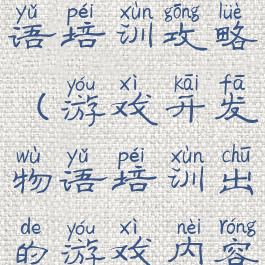 yǔ péi xùn gōng lüè
语培训攻略
yóu xì kāi fā
（游戏开发
wù yǔ péi xùn chū
物语培训出
de yóu xì nèi róng
的游戏内容